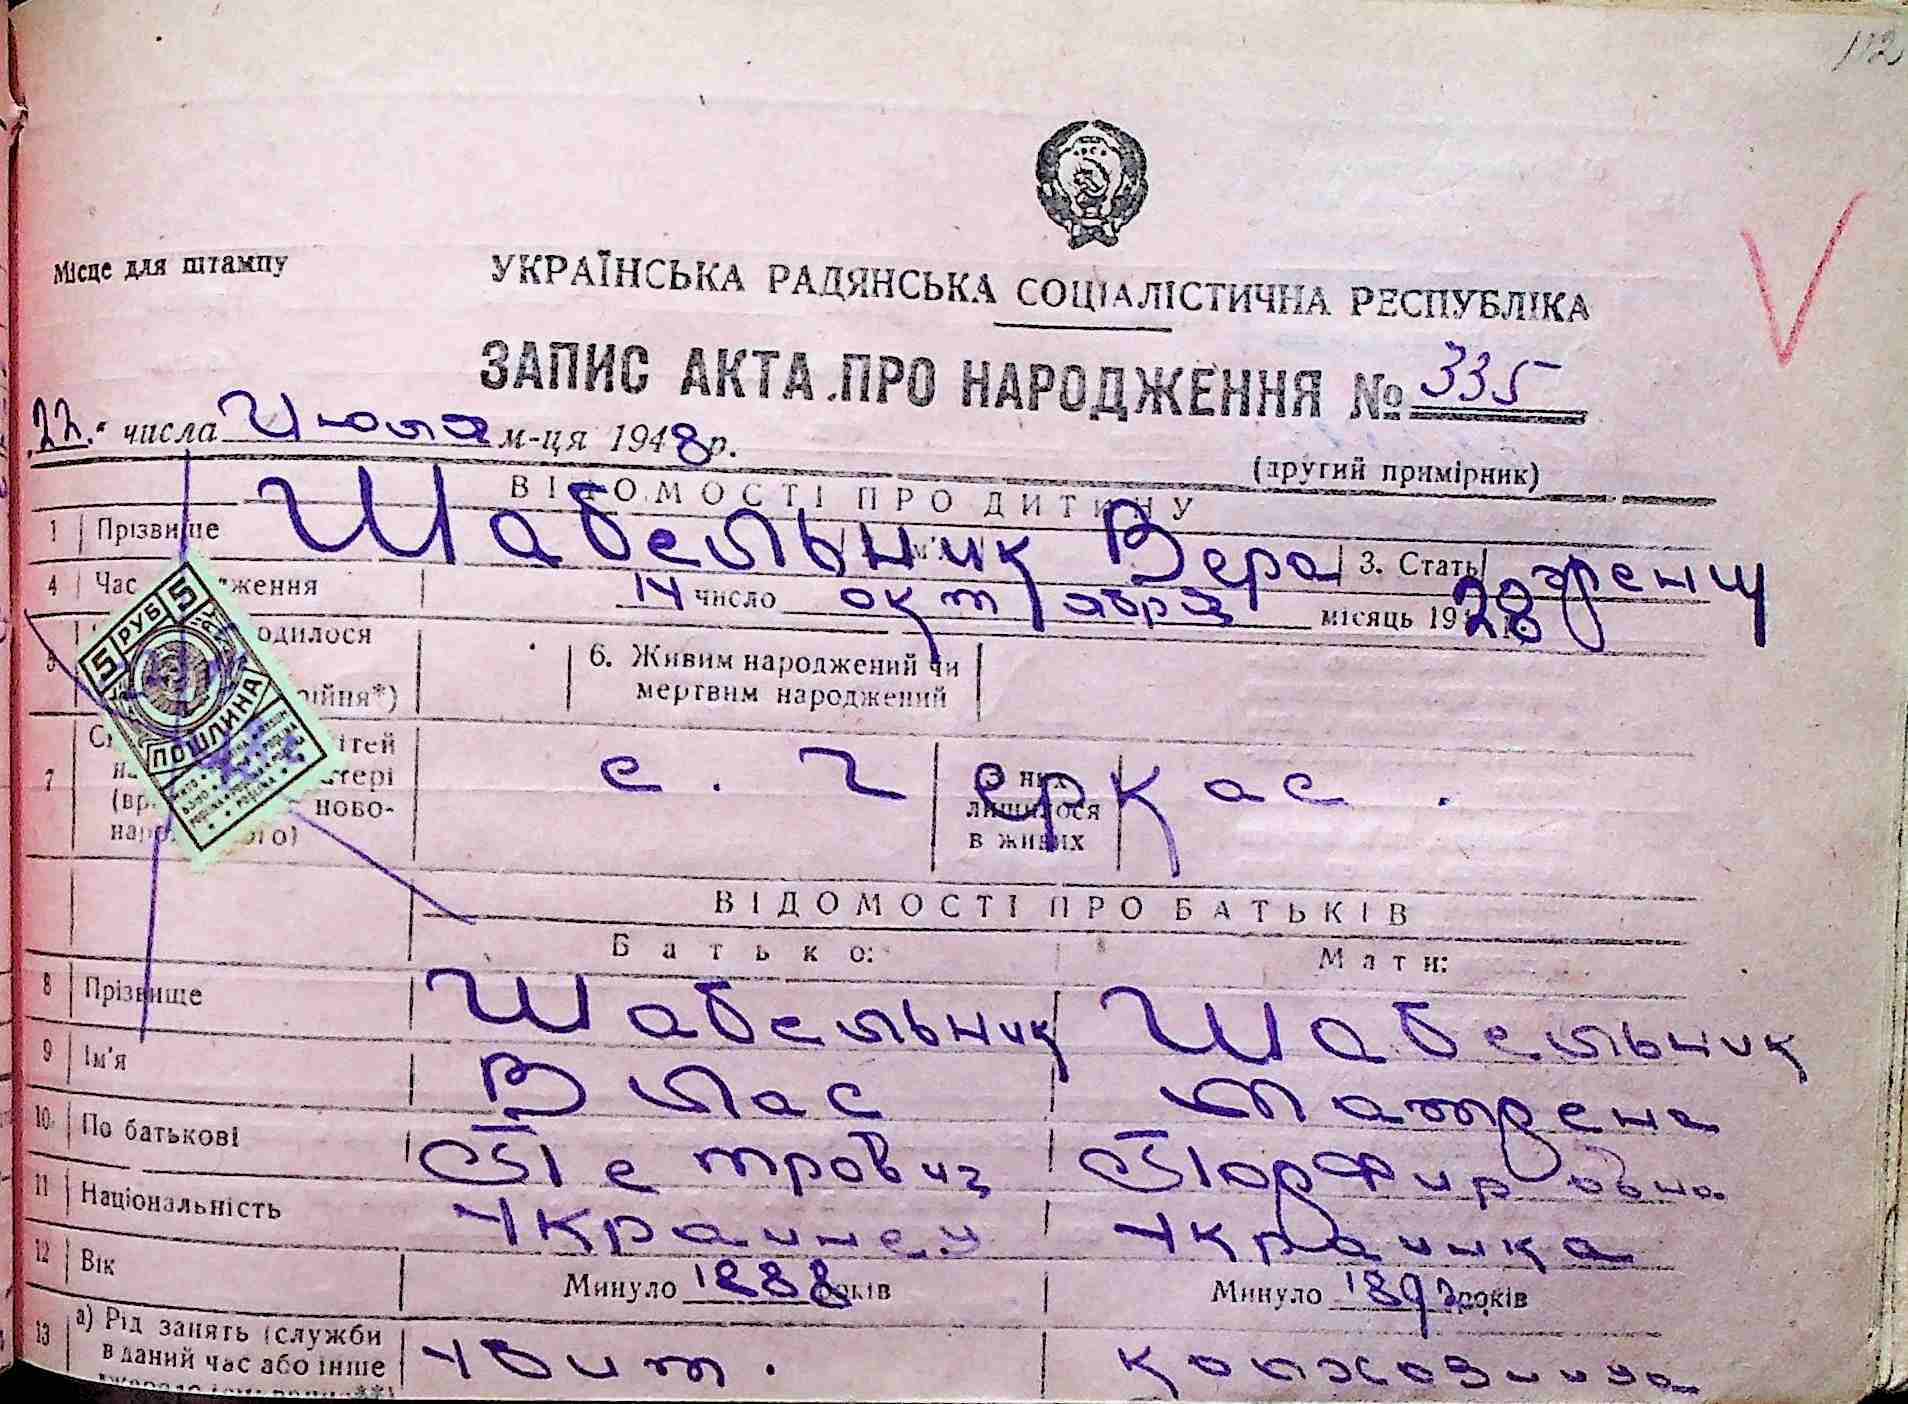 112
Місце для штампу
УКРАЇНСЬКА РАДЯНСЬКА СОЦІАЛІСТИЧНА РЕСПУБЛІКА
ЗАПИС АКТА ПРО НАРОДЖЕННЯ № 335
22 числа Июля м-ця 1948 р.
(другий примірник)
ВІДОМОСТІ ПРО ДИТИНУ
1 Прізвище Шабельник Вера 3. Стать
4 Час ження 14 число октября місяць 1928
одилося
5 ійня*)
6. Живим народжений чи
мертвим народжений
7 ітей
тері
ново-
с. Черкас.
З них
лишилося
в живих
ВІДОМОСТІ ПРО БАТЬКІВ
Батько: Мати:
8 Прізвище Шабельник Шабельник
9 Ім'я Влас Матрена
10 По батькові Петрович Порфировна
11 Національність Украинец Украинка
12 Вік Минуло 1888 років Минуло 1892 років
5 РУБ 5
ПОШЛИНА
13 а) Рід занять (служби
в даний час або інше
колхозница